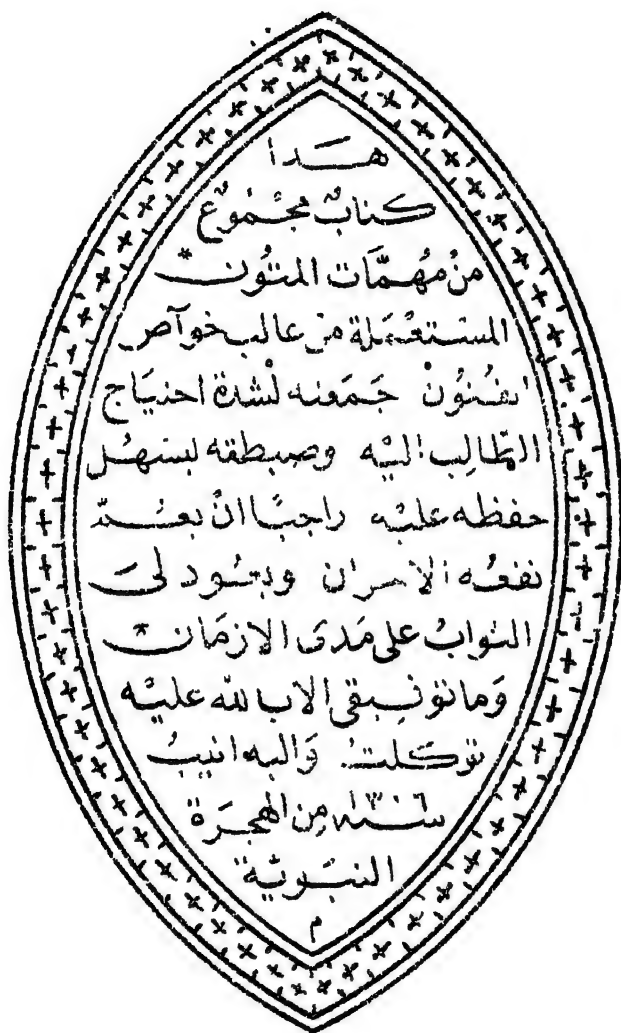 هـذا
كتابٌ مجْموعٌ
منْ مهُمَّات المتُون *
المستعْملة من غالب خوآص
الفُنُونْ جَمَعته لشدة احتيَاج
الطَّالِب اليْه وضبطته ليسهُل
حفظه عليْه راجيًا انْ يعُمَّ
نفعُه الاخوان ويعُود لىَ
الثوابُ على مَدَى الازمَان *
وَما توفيقى الا بالله عليْه
توكلتُ وَاليه انيبُ
سنة ١٣٠٦ مِن الهجرَة
النبَويَّة
م